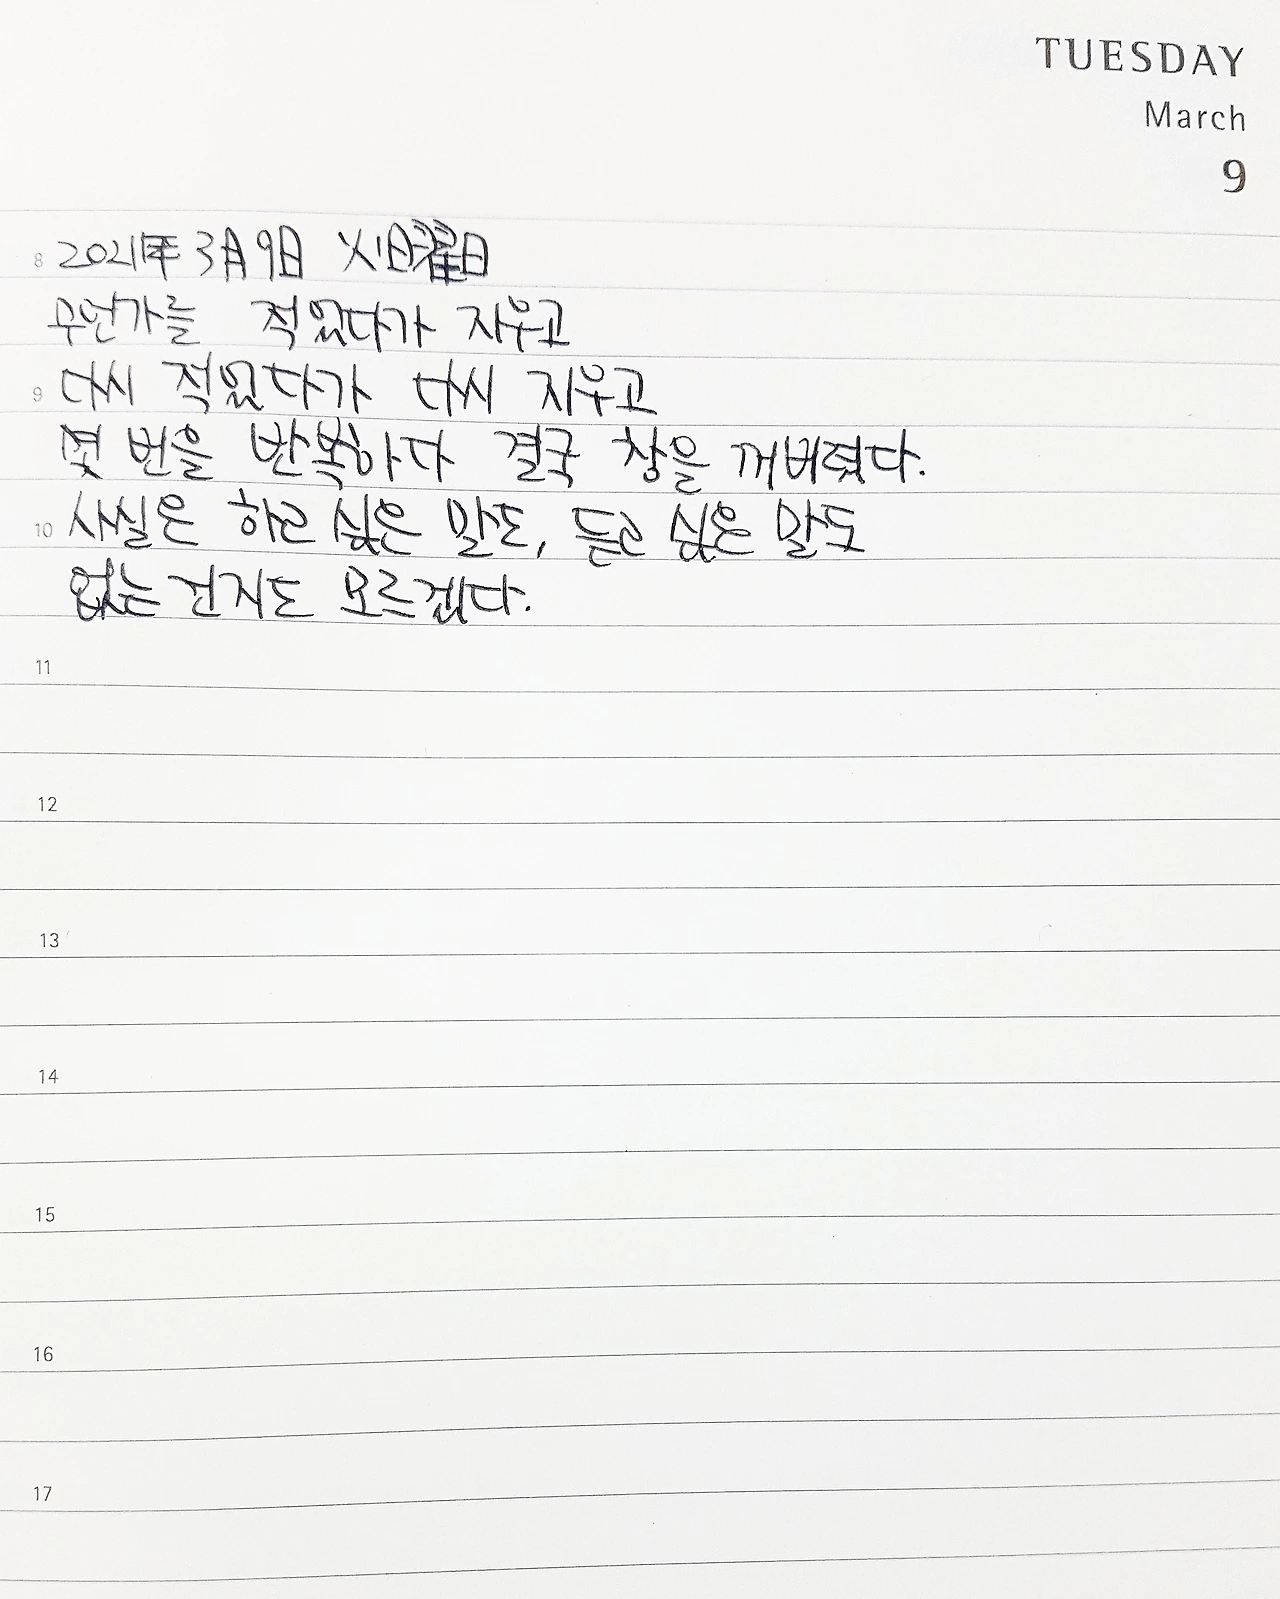 TUESDAY
March
9
8 2021年 3月 9日 火曜日
무언가를 적었다가 지우고
9 다시 적었다가 다시 지우고
몇 번을 반복하다 결국 창을 꺼버렸다.
10 사실은 하고 싶은 말도, 듣고 싶은 말도
없는 건지도 모르겠다.
11
12
13
14
15
16
17